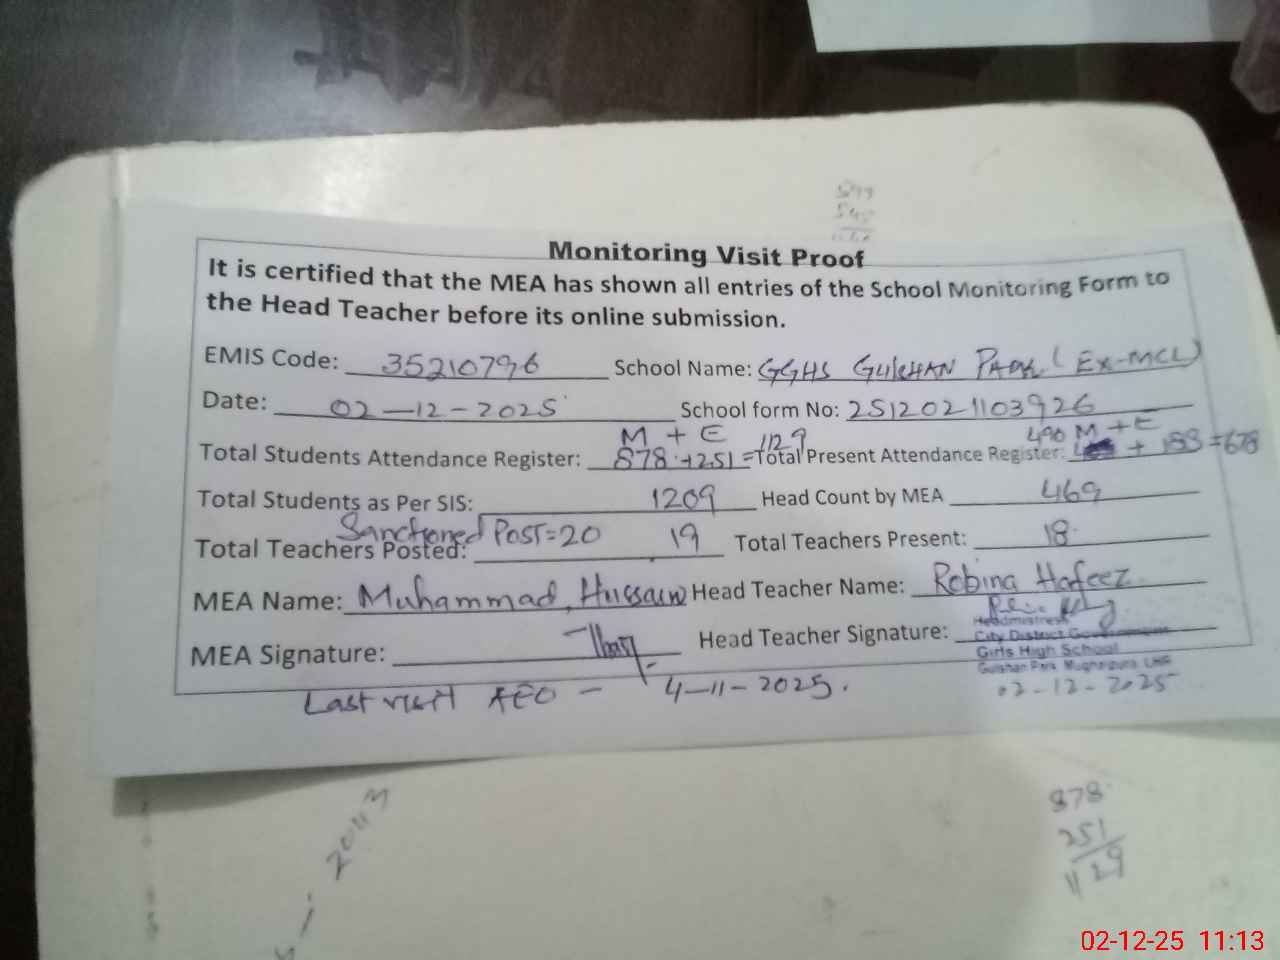 Monitoring Visit Proof
It is certified that the MEA has shown all entries of the School Monitoring Form to
the Head Teacher before its online submission.
EMIS Code: 35210796 School Name: GGHS GULSHAN PARK (Ex-MCL)
Date: 02-12-2025 School form No: 2512021103926
M + E 1129 490 M + E
Total Students Attendance Register: 878+251= Total Present Attendance Register: + 188=678
Total Students as Per SIS: 1209 Head Count by MEA 469
Sanctioned Post=20
Total Teachers Posted: 19 Total Teachers Present: 18
MEA Name: Muhammad Hussain Head Teacher Name: Robina Hafeez
MEA Signature: Head Teacher Signature:
Headmistress
City District Government
Girls High School
Gulshan Park Mughalpura LHR
Last visit AEO - 4-11-2025. 02-12-2025
878
251
1129
02-12-25 11:13